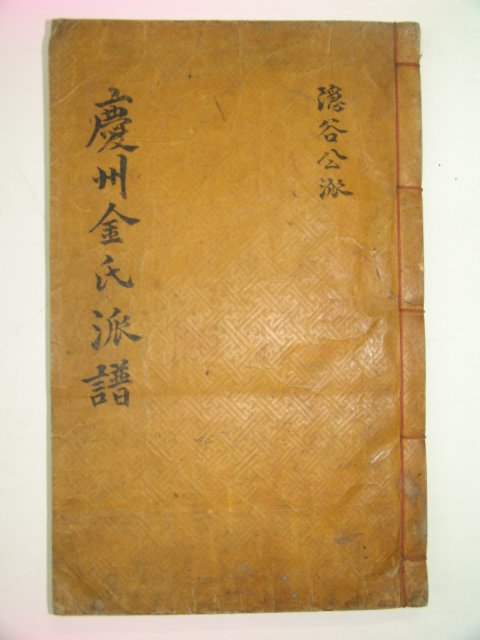 隐谷公派
慶州金氏派譜